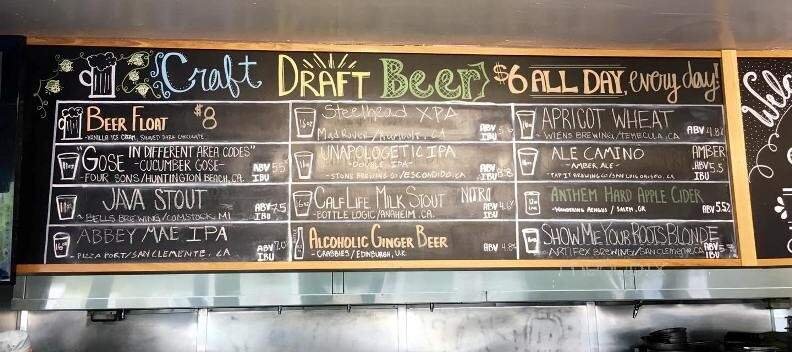 Craft DRAFT Beer $6 ALL DAY, every day!
BEER FLOAT $8
-VANILLA ICE CREAM, SHAVED DARK CHOCOLATE
"GOSE IN DIFFERENT AREA CODES"
-CUCUMBER GOSE-
-FOUR SONS/HUNTINGTON BEACH, CA. ABV 5.5
IBU
JAVA STOUT
-BELLS BREWING/COMSTOCK, MI ABV 7.5
IBU
ABBEY MAE IPA
-PIZZA PORT/SAN CLEMENTE, CA ABV 7.0
IBU
Steelhead XPA
Mad River/Humboldt, CA ABV
IBU
UNAPOLOGETIC IPA
-DOUBLE IPA-
-STONE BREWING CO/ESCONDIDO, CA. ABV 8.8
IBU
CALF LIFE MILK STOUT NITRO
-BOTTLE LOGIC/ANAHEIM, CA. ABV
IBU
ALCOHOLIC GINGER BEER
-CRABBIES/EDINBURGH, U.K. ABV 4.8%
APRICOT WHEAT
-WIENS BREWING/TEMECULA, CA ABV 4.8%
IBU
ALE CAMINO AMBER
-AMBER ALE-
-TAP IT BREWING CO/SAN LUIS OBISPO, CA. ABV 5.5
IBU
ANTHEM HARD APPLE CIDER
-WANDERING AENGUS/SALEM, OR ABV 5.5%
SHOW ME YOUR ROOTS BLONDE
-ARTIFEX BREWING/SAN CLEMENTE, CA ABV
IBU